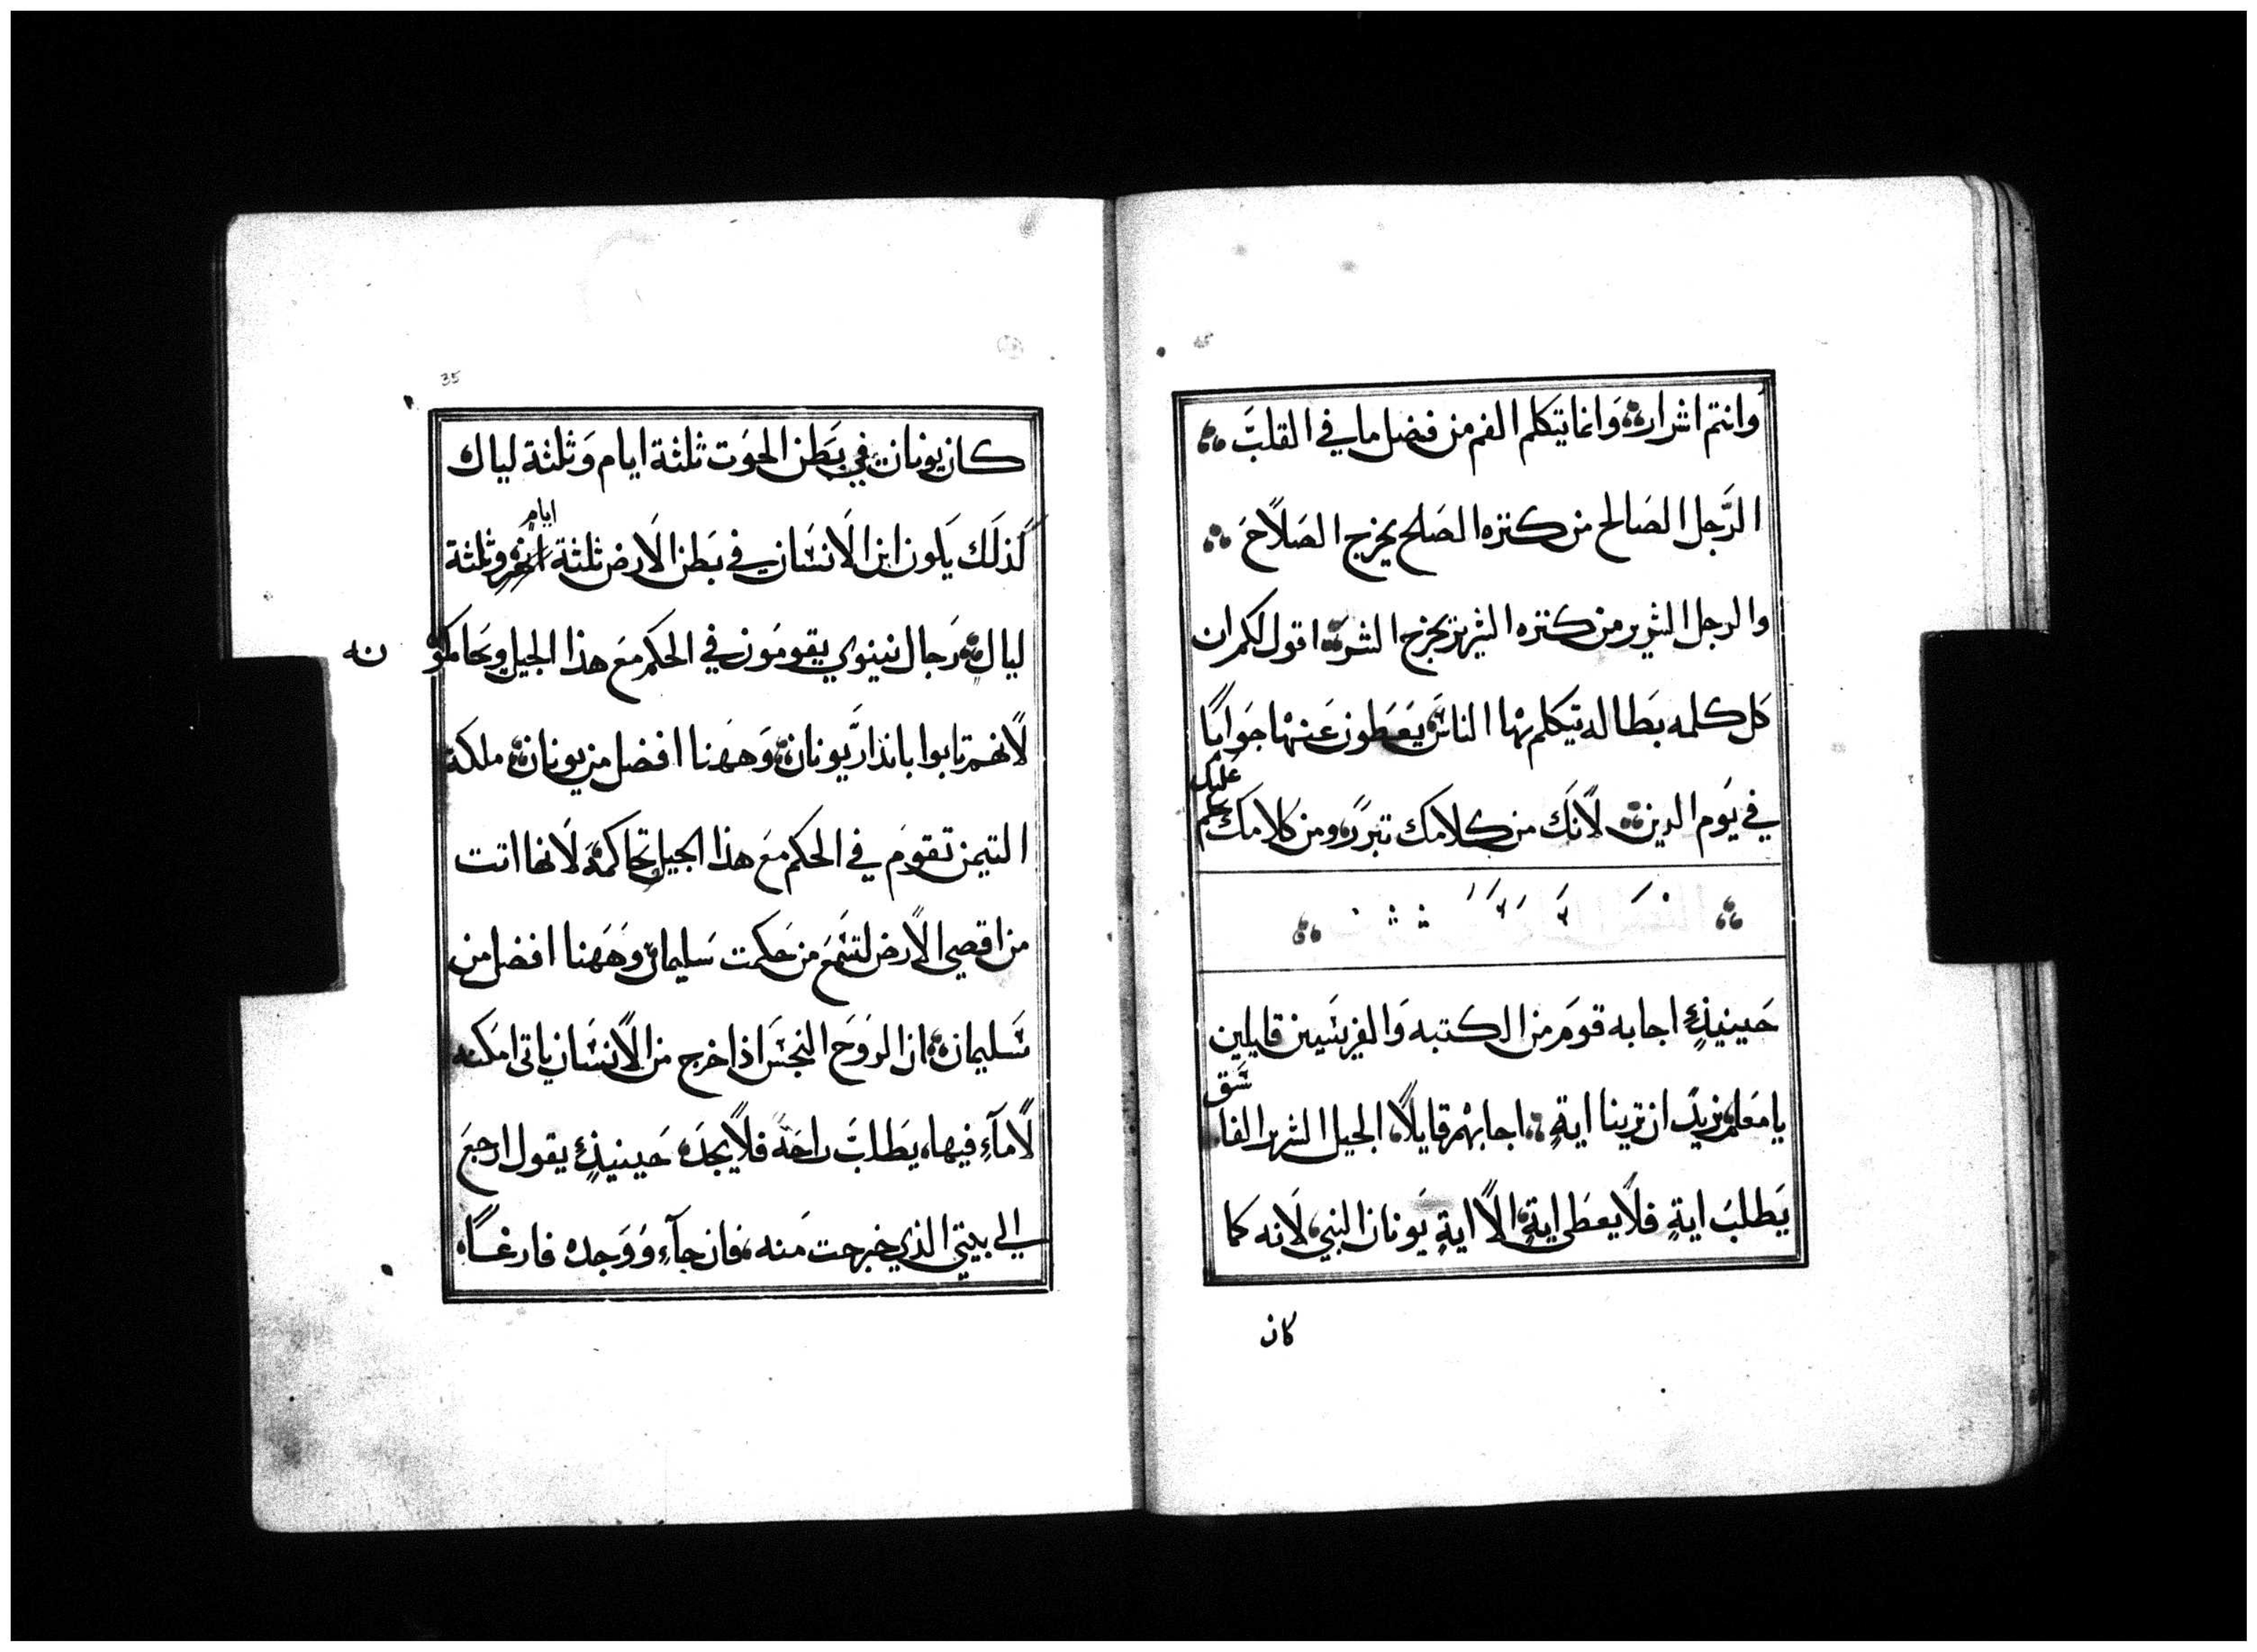 وانتم اشرار وَانما يتكلم الفم من فضل ما في القلبَ
الرَّجل الصَالح من كنزه الصَلح يخرج الصَلاَحَ
والرجل الشرير من كنزه الشرير يخرج الشر اقول لكم ان
كل كلمه بطاله يتكلم بها الناس يَعَطون عَنها جَوابًا
في يَوم الدين لاَنك من كلامك تبرر ومن كلامك يحكم عليك
حَينيذٍ اجابه قومَ من الكتبه وَالفريسَيين قايلين
يا مَعلم نريدَ ان ترينا ايةٍ اجابهم قايلاً الجيل الشرير الفاسَق
يَطلبَ ايةٍ فلاَ يعطَى ايةٍ الاَّ ايةٍ يَونان النبي لاَنه كما
كان
35
كان يونان في بَطن الحوَت ثلثة ايام وَثلثة ليال
كذلَك يَكون ابن الاَنسَان في بَطن الاَرض ثلثة ايام وثلثة
ليالٍ رَجال نينوي يقومَون في الحكم مَع هذا الجيل ويَحاكمونه
لاَنهم تابوا بانذار يَونان وَههَنا افضل من يونان ملكة
التيمن تقومَ في الحكم مَع هذا الجيل تحاكمه لاَنها اتت
من اقصي الاَرض لتسَمَع من حَكمت سَليمان وهَهَنا افضل من
سَليمان ان الروَحَ النجسَ اذا خرج من الاَنسَان ياتى امكنه
لاَ مآءٍ فيها يَطلبَ راحَة فلاَ يجدَه حَينيذٍ يقول ارجعَ
الي بيتي الذي خرجت مَنه فان جآءٍ وَوَجده فارغاً